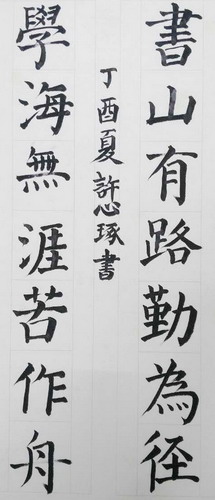 書山有路勤為径
學海無涯苦作舟
丁酉夏許心琢書